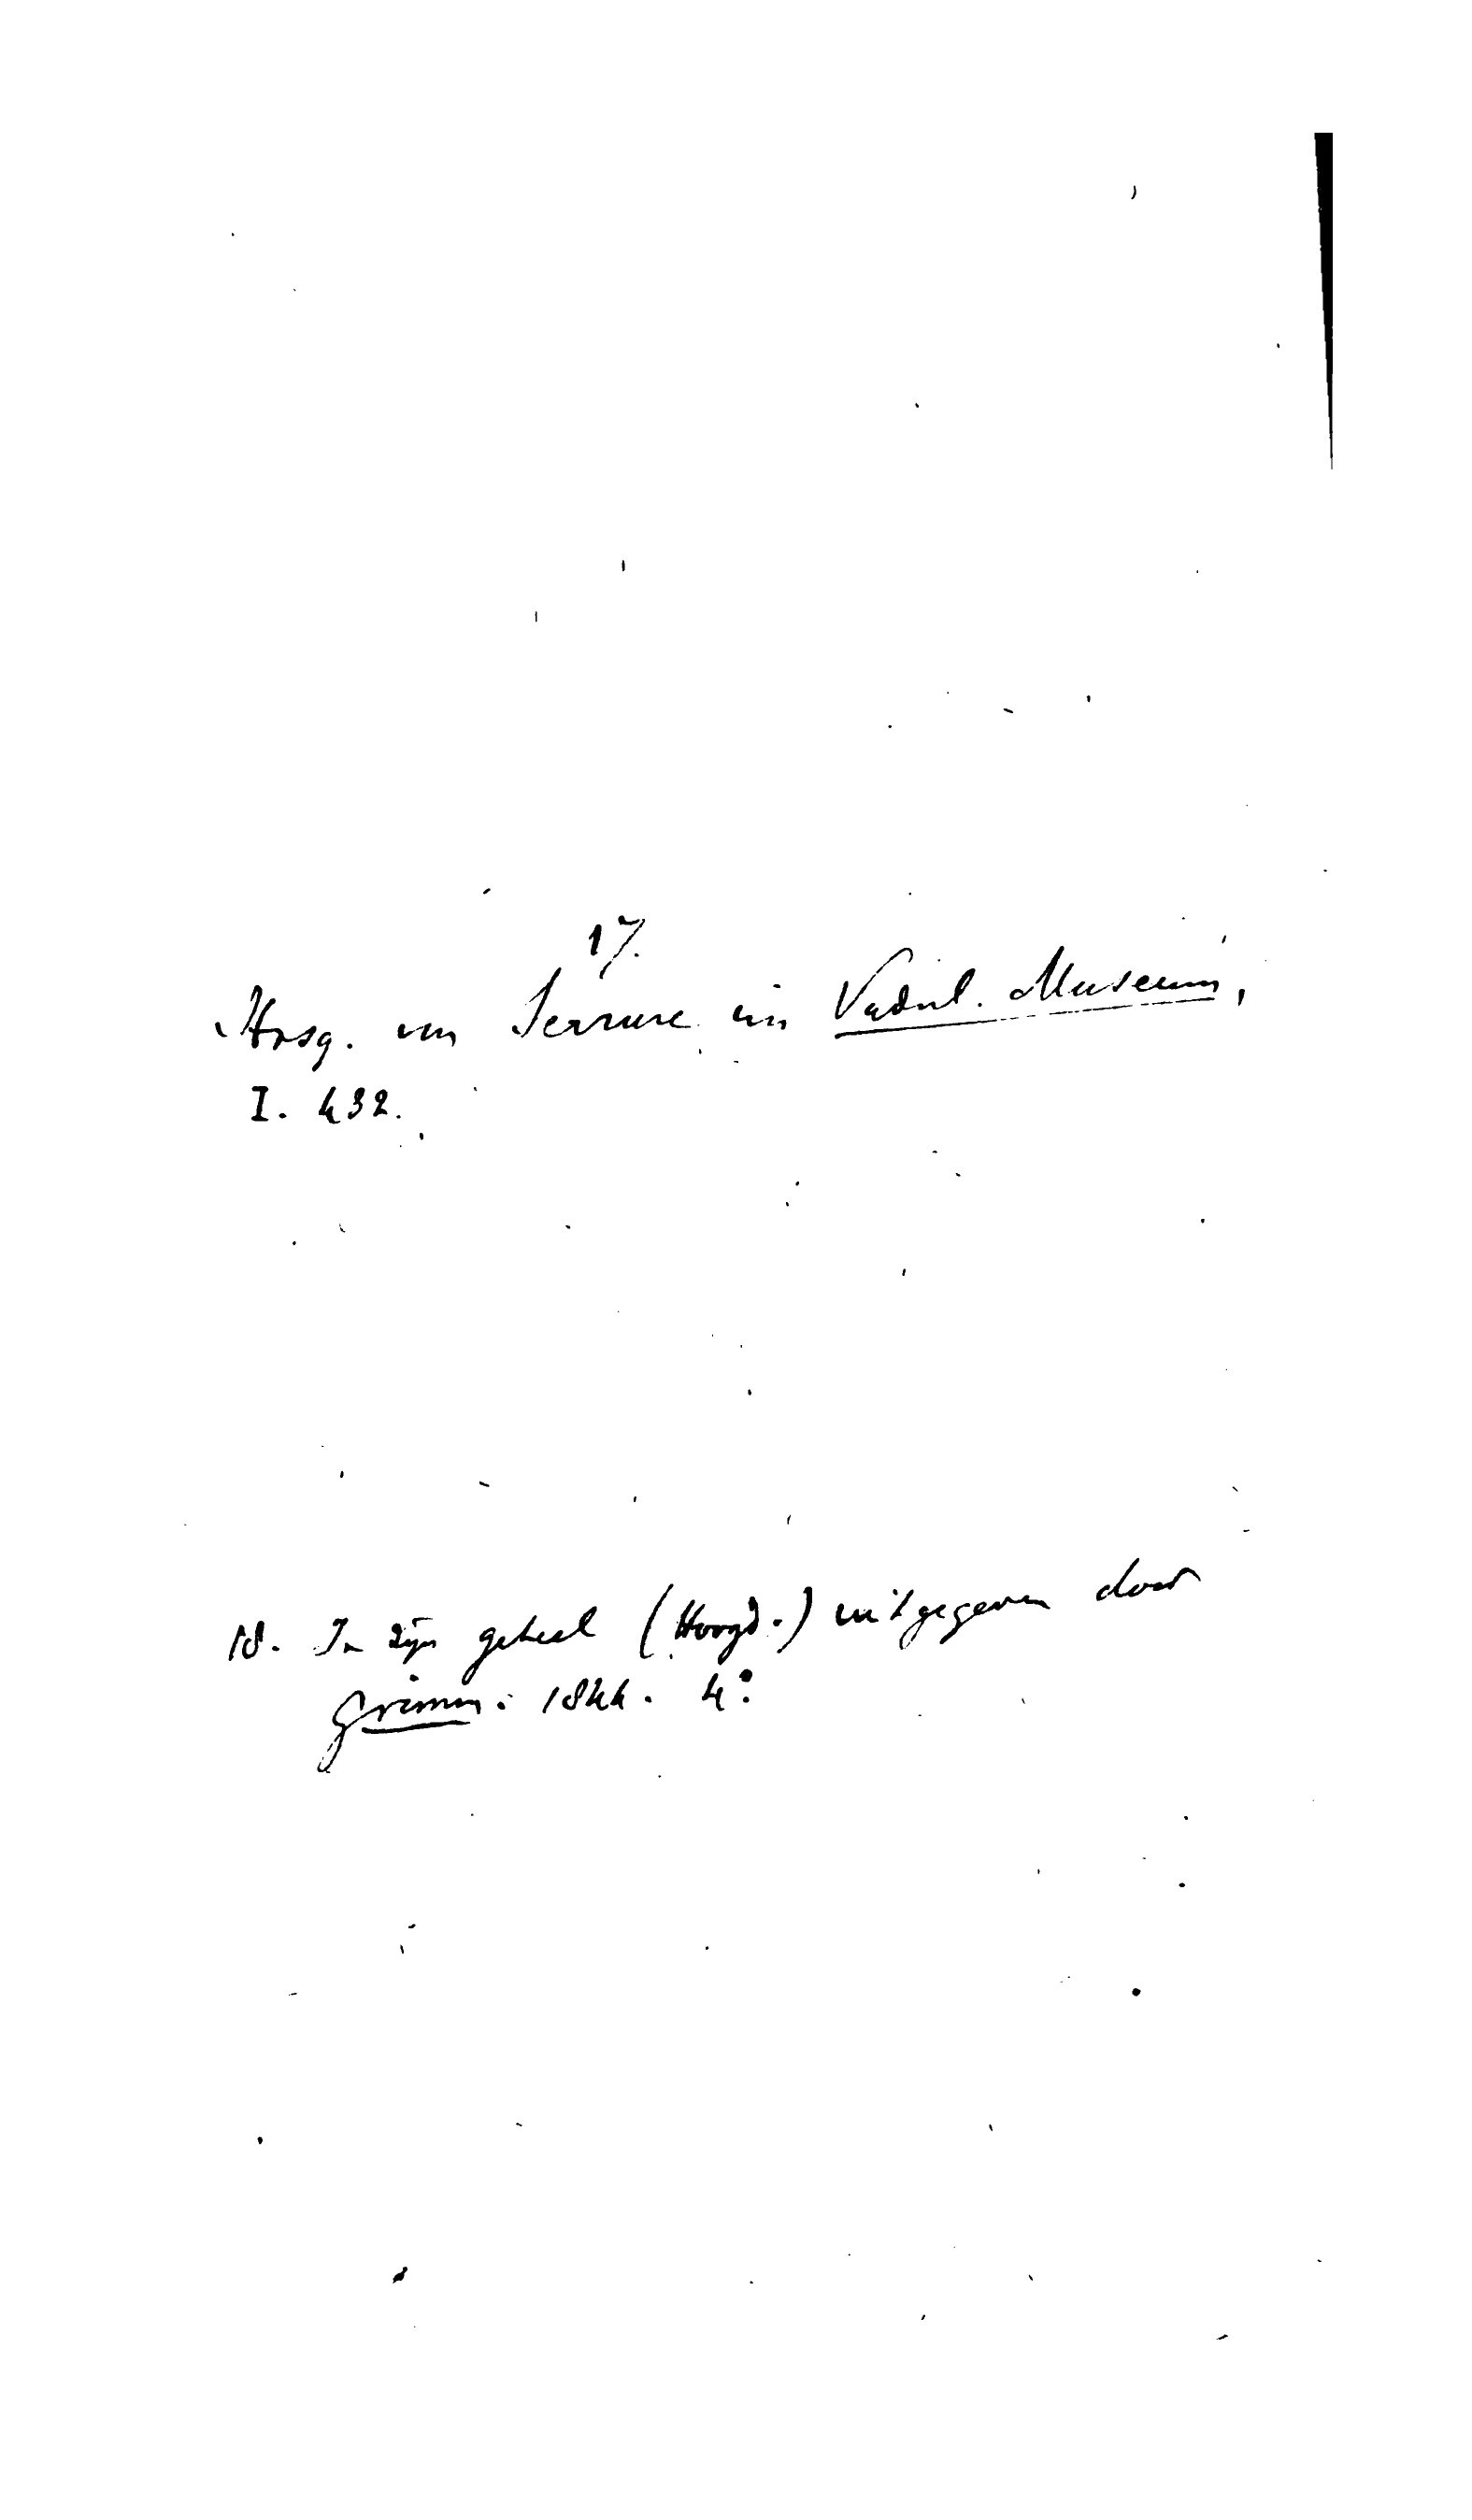 17.
Hrsg. von Serrure in Vaderl. Museum,
I. 432.
18. In zijn geheel (Hoogd.) uitgegeven door
Grimm. 1844. 4°